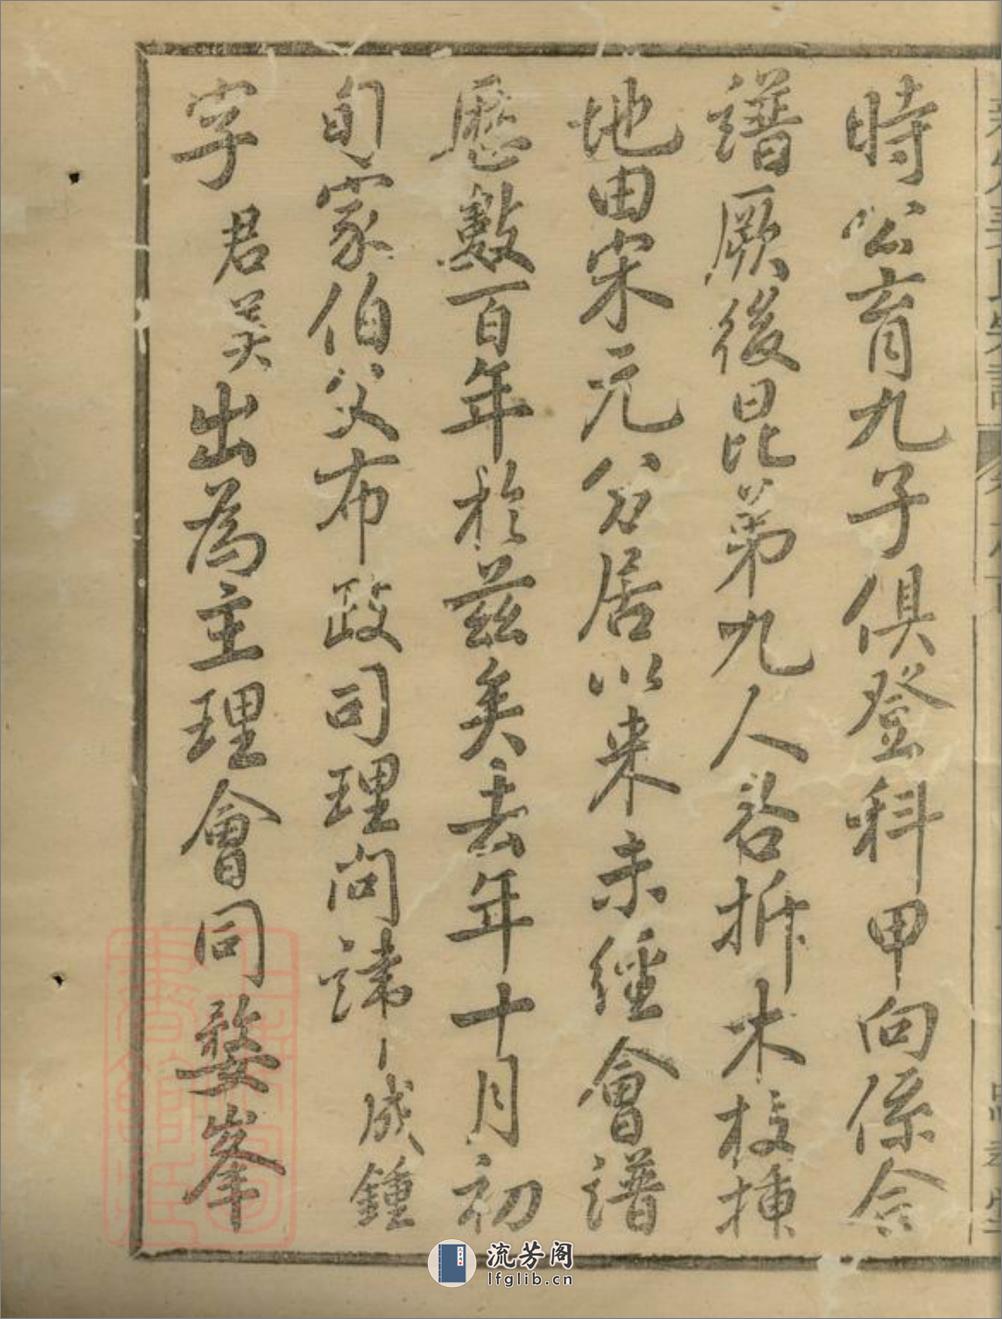 時公育九子俱登科甲向係合
譜厥後昆弟九人各拆木枝揀
地由宋元分居以来未經會譜
歷數百年於兹矣去年十月初
旬家伯父布政司理問諱一成鍾
字君美出為主理會同婺峯
流芳阁
lfglib.cn